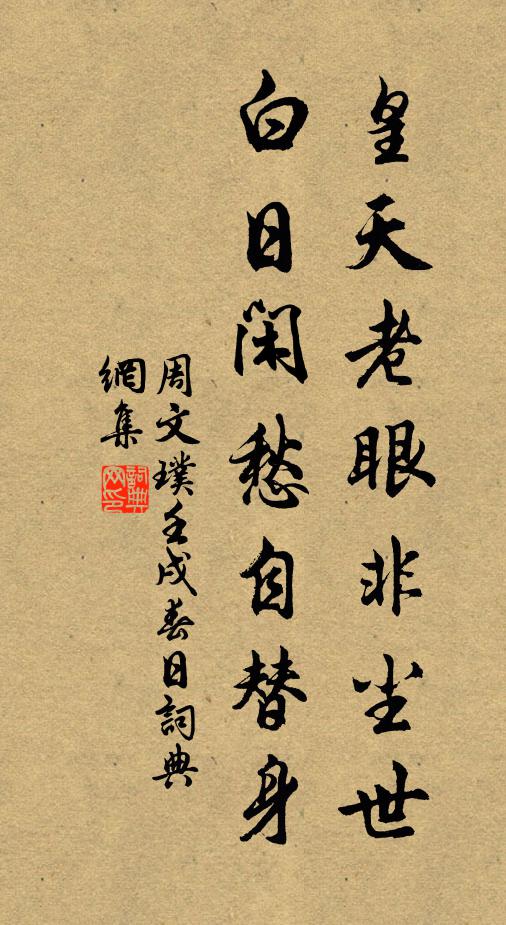 皇天老眼非尘世
白日閑愁自替身
周文璞壬戌春日詞典
網集
詞典
网印